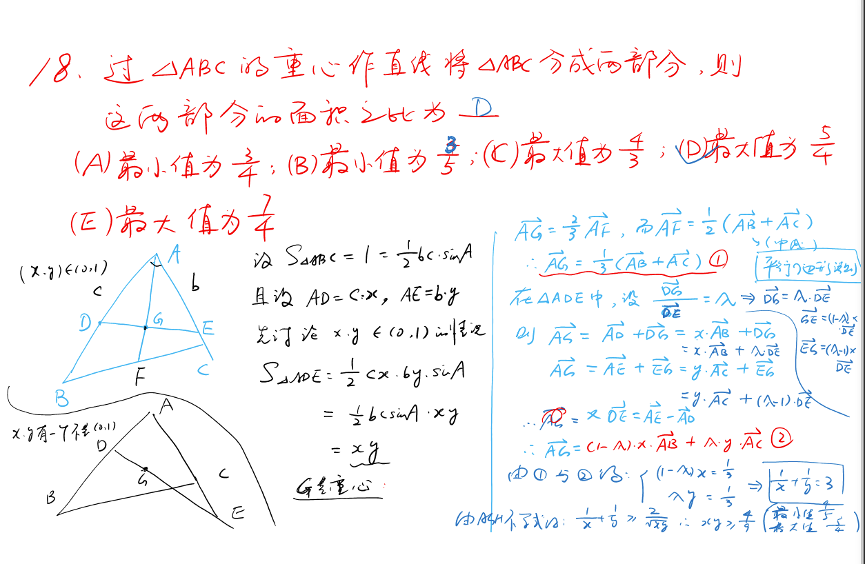 18. 过△ABC的重心作直线将△ABC分成两部分,则
这两部分的面积之比为 D
(A)最小值为3/4; (B)最小值为3/5; (C)最大值为4/3; (D)最大值为5/4
(E)最大值为7/4
(x.y)∈(0,1)
A
c
b
D
G
E
F
C
B
x.y有一个不在(0.1)
A
D
G
C
B
E
设 S△ABC = 1 = 1/2 bc·sinA
且设 AD=c·x, AE=b·y
先讨论 x.y ∈(0,1)的情况
S△ADE = 1/2 cx·by·sinA
= 1/2 bcsinA·xy
= xy
G是重心:
AG = 2/3 AF, 而 AF = 1/2 (AB+AC)
∴ AG = 1/3 (AB+AC) ①
在△ADE中, 设 DG/DE = λ ⇒ DG = λ·DE
GE=(1-λ)×DE
则 AG = AD + DG = x·AB + DG
= x·AB + λDE
EG=(λ-1)×DE
AG = AE + EG = y·AC + EG
= y·AC + (λ-1)·DE
DE = AE - AD
∴ AG = (1-λ)·x·AB + λ·y·AC ②
由①与②得: { (1-λ)x = 1/3
λy = 1/3 ⇒ 1/x + 1/y = 3
1/x + 1/y ≥ 2/√xy ∴ xy ≥ 4/9 (最小值 4/5
最大值 5/4)